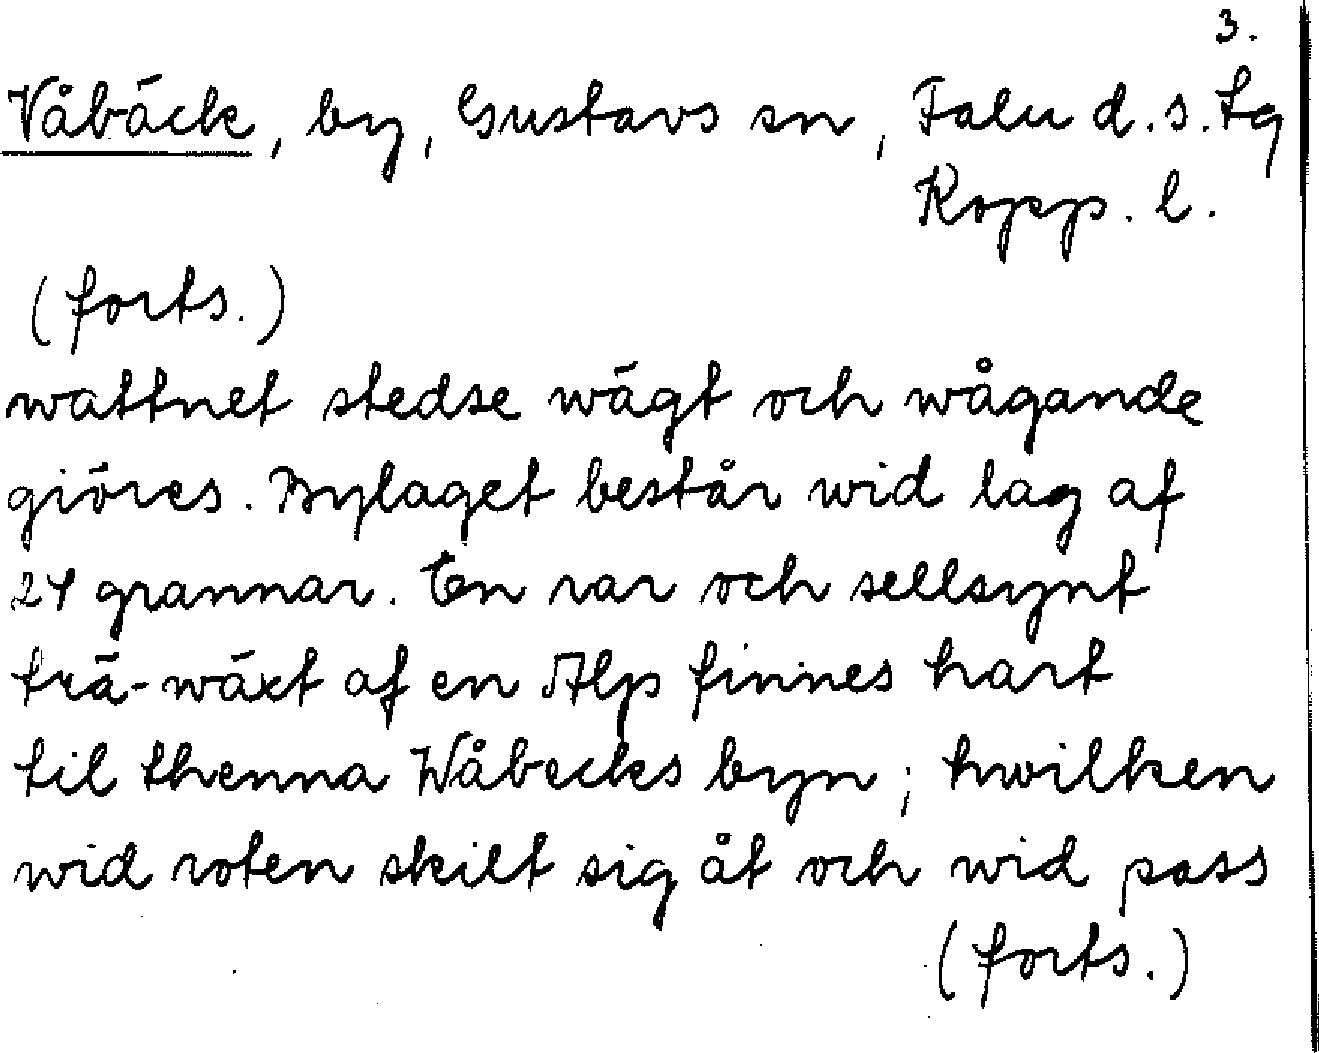 3.
Våbäck, by, Gustavs sn, Falu d.s. tg
Kopp. l.
(forts.)
wattnet stedse wägt och wågande
giöres. Bylaget består wid lag af
24 grannar. En rar och sellsynt
trä-wäxt af en Alp finnes hart
til thenna Wåbecks byn; hwilken
wid roten skilt sig åt och wid pass
(forts.)